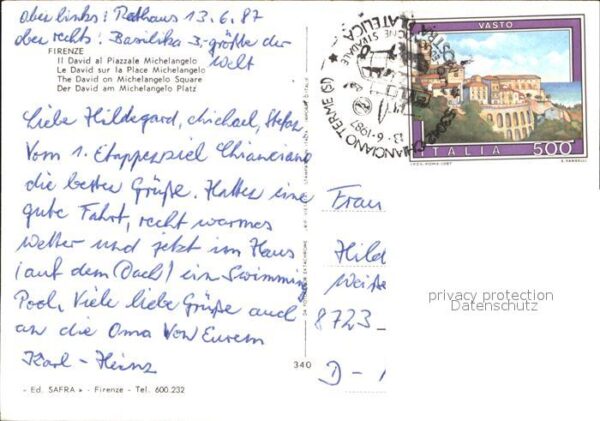 oben links: Rathaus 13.6.87
oben rechts: Basilika 3.-größte der
Welt
FIRENZE
Il David al Piazzale Michelangelo
Le David sur la Place Michelangelo
The David on Michelangelo Square
Der David am Michelangelo Platz
Liebe Hildegard, Michael, Stefan
Vom 1. Etappenziel Chianciano
die besten Grüße. Hatten eine
gute Fahrt, recht warmes
Wetter und jetzt im Haus
(auf dem Dach) ein Swimming
Pool. Viele liebe Grüße auch
an die Oma von Eurem
Karl-Heinz
- Ed. SAFRA - Firenze - Tel. 600.232
340
VASTO
ITALIA 500
CHIANCIANO TERME (SI)
13-6-1987
FILATELICA
Frau
Hild
Weiße
8723
D-
privacy protection
Datenschutz